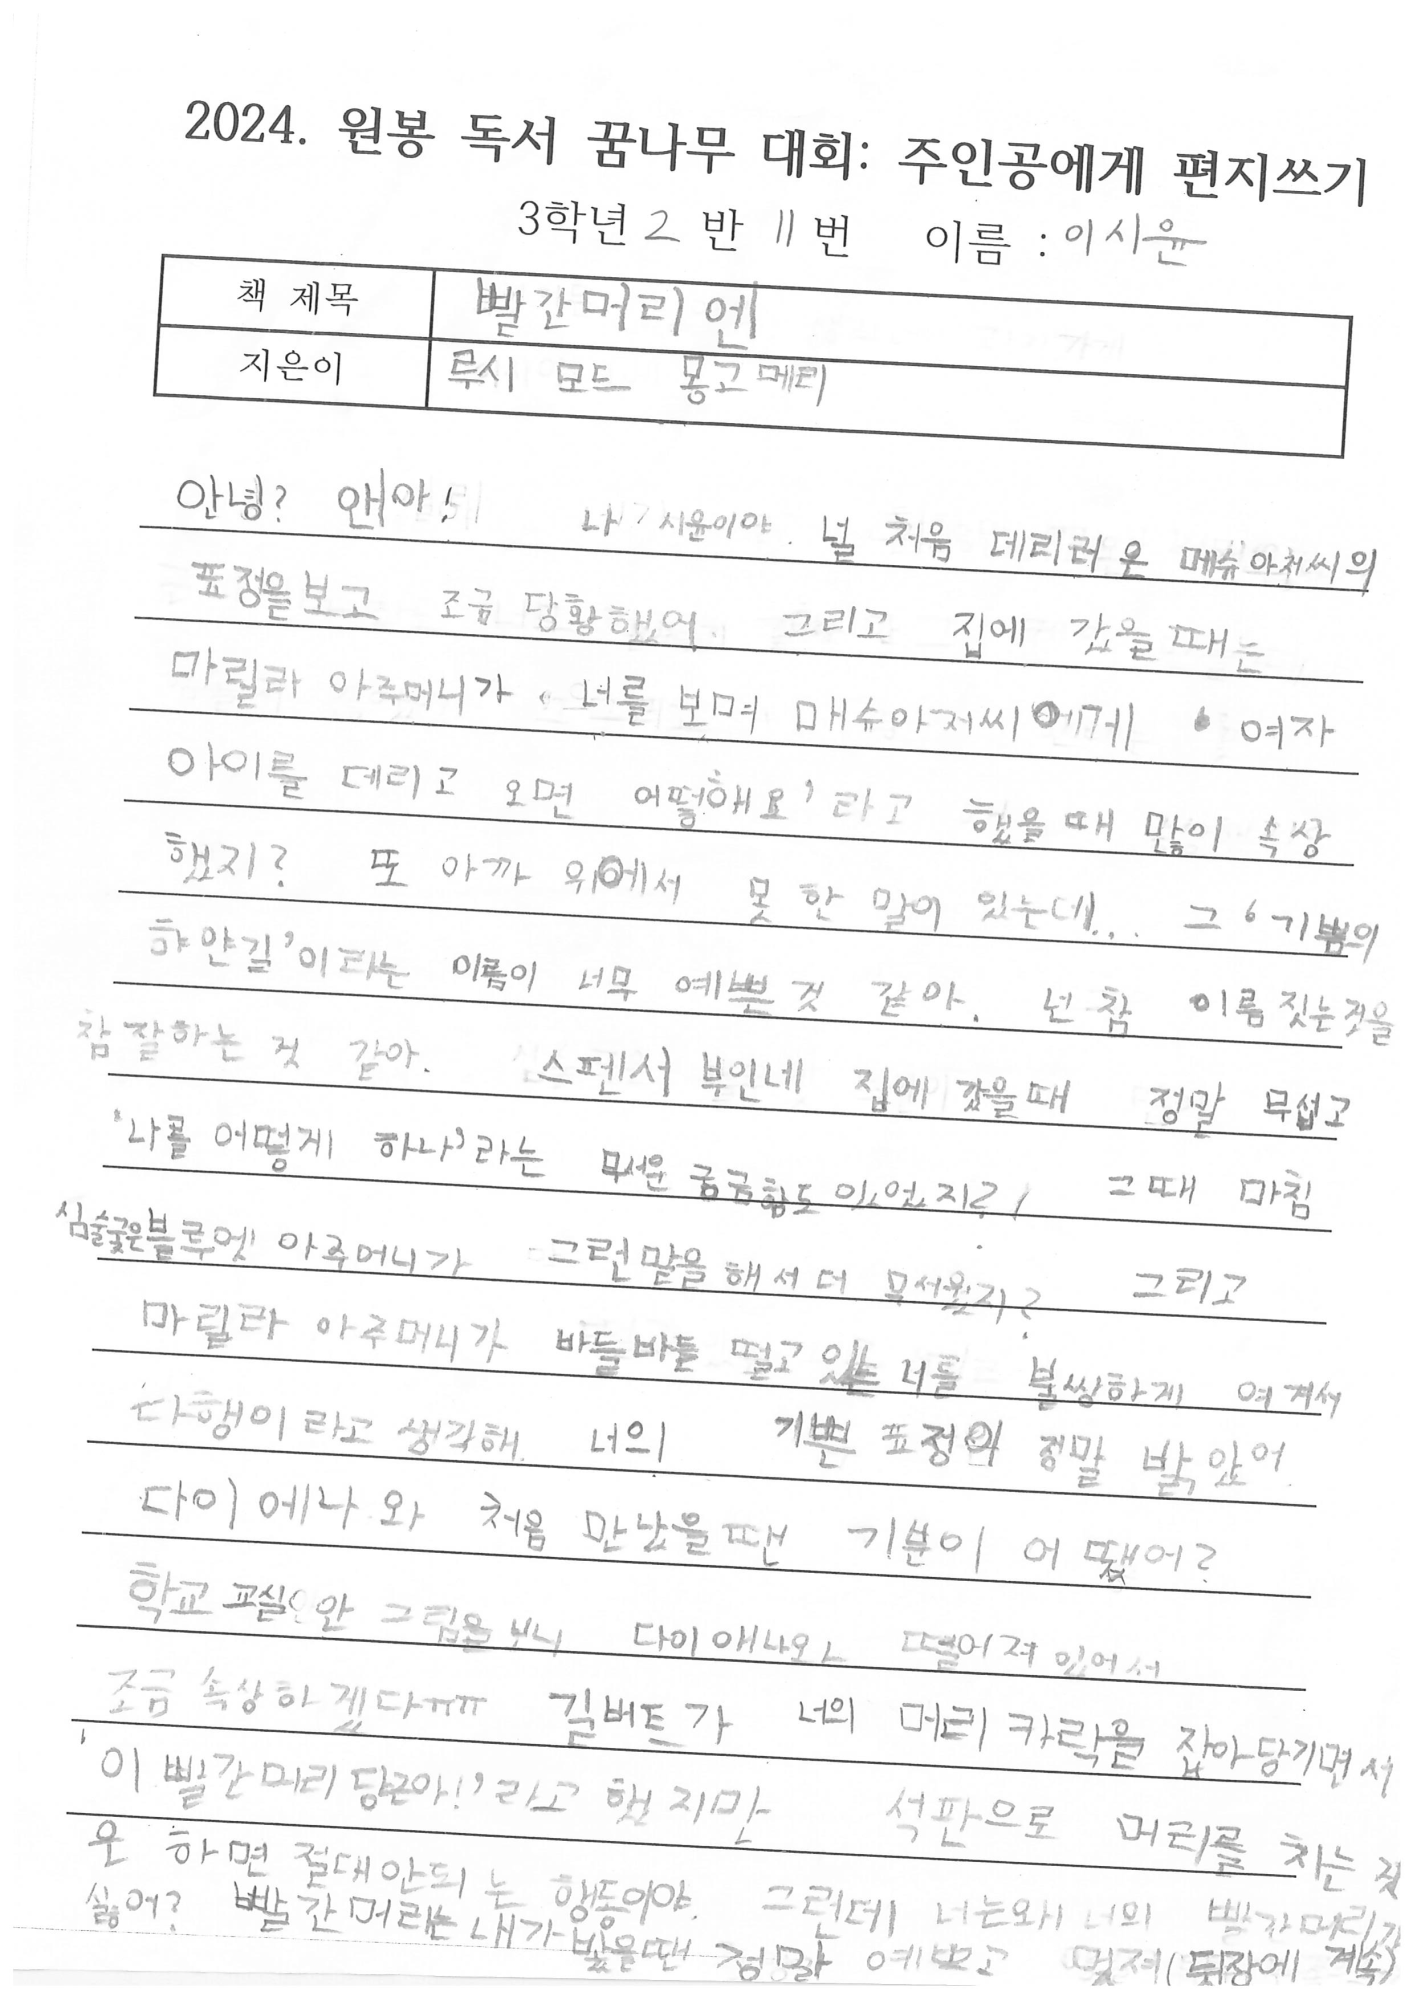 2024. 원봉 독서 꿈나무 대회: 주인공에게 편지쓰기
3학년 2 반 11 번 이름 : 이시윤
책 제목 빨간머리 엔
지은이 루시 모드 몽고메리
안녕? 앤아! 나 시윤이야. 널 처음 데리러 온 메슈아저씨의
표정을보고 조금 당황했어. 그리고 집에 갔을때는
마릴라 아주머니가 너를 보며 매슈아저씨에게 ' 여자
아이를 데리고 오면 어떻해요' 라고 했을때 많이 속상
했지? 또 아까 위에서 못 한 말이 있는데... 그 '기쁨의
하얀길'이라는 이름이 너무 예쁜것 같아. 넌 참 이름 짓는것을
참 잘하는 것 같아. 스펜서 부인네 집에 갔을때 정말 무섭고
'나를 어떻게 하나'라는 무서운 궁금함도 있었지? 그때 마침
심술궂은블루엣 아주머니가 그런말을 해서 더 무서웠지? 그리고
마릴라 아주머니가 바들바들 떨고 있는 너를 불쌍하게 여겨서
다행이라고 생각해. 너의 기쁜 표정이 정말 밝았어.
다이에나와 처음 만났을땐 기분이 어땠어?
학교 교실 안 그림을 보니 다이애나와 떨어져 있어서
조금 속상하겠다ㅠㅠ 길버트가 너의 머리카락을 잡아당기면서
'이 빨간머리 당근아!'라고 했지만 석판으로 머리를 치는 것
은 하면 절대안되는 행동이야. 그런데 너는왜 너의 빨간머리가
싫어? 빨간머리는 내가 봤을땐 정말 예쁘고 멋져(뒷장에 계속)